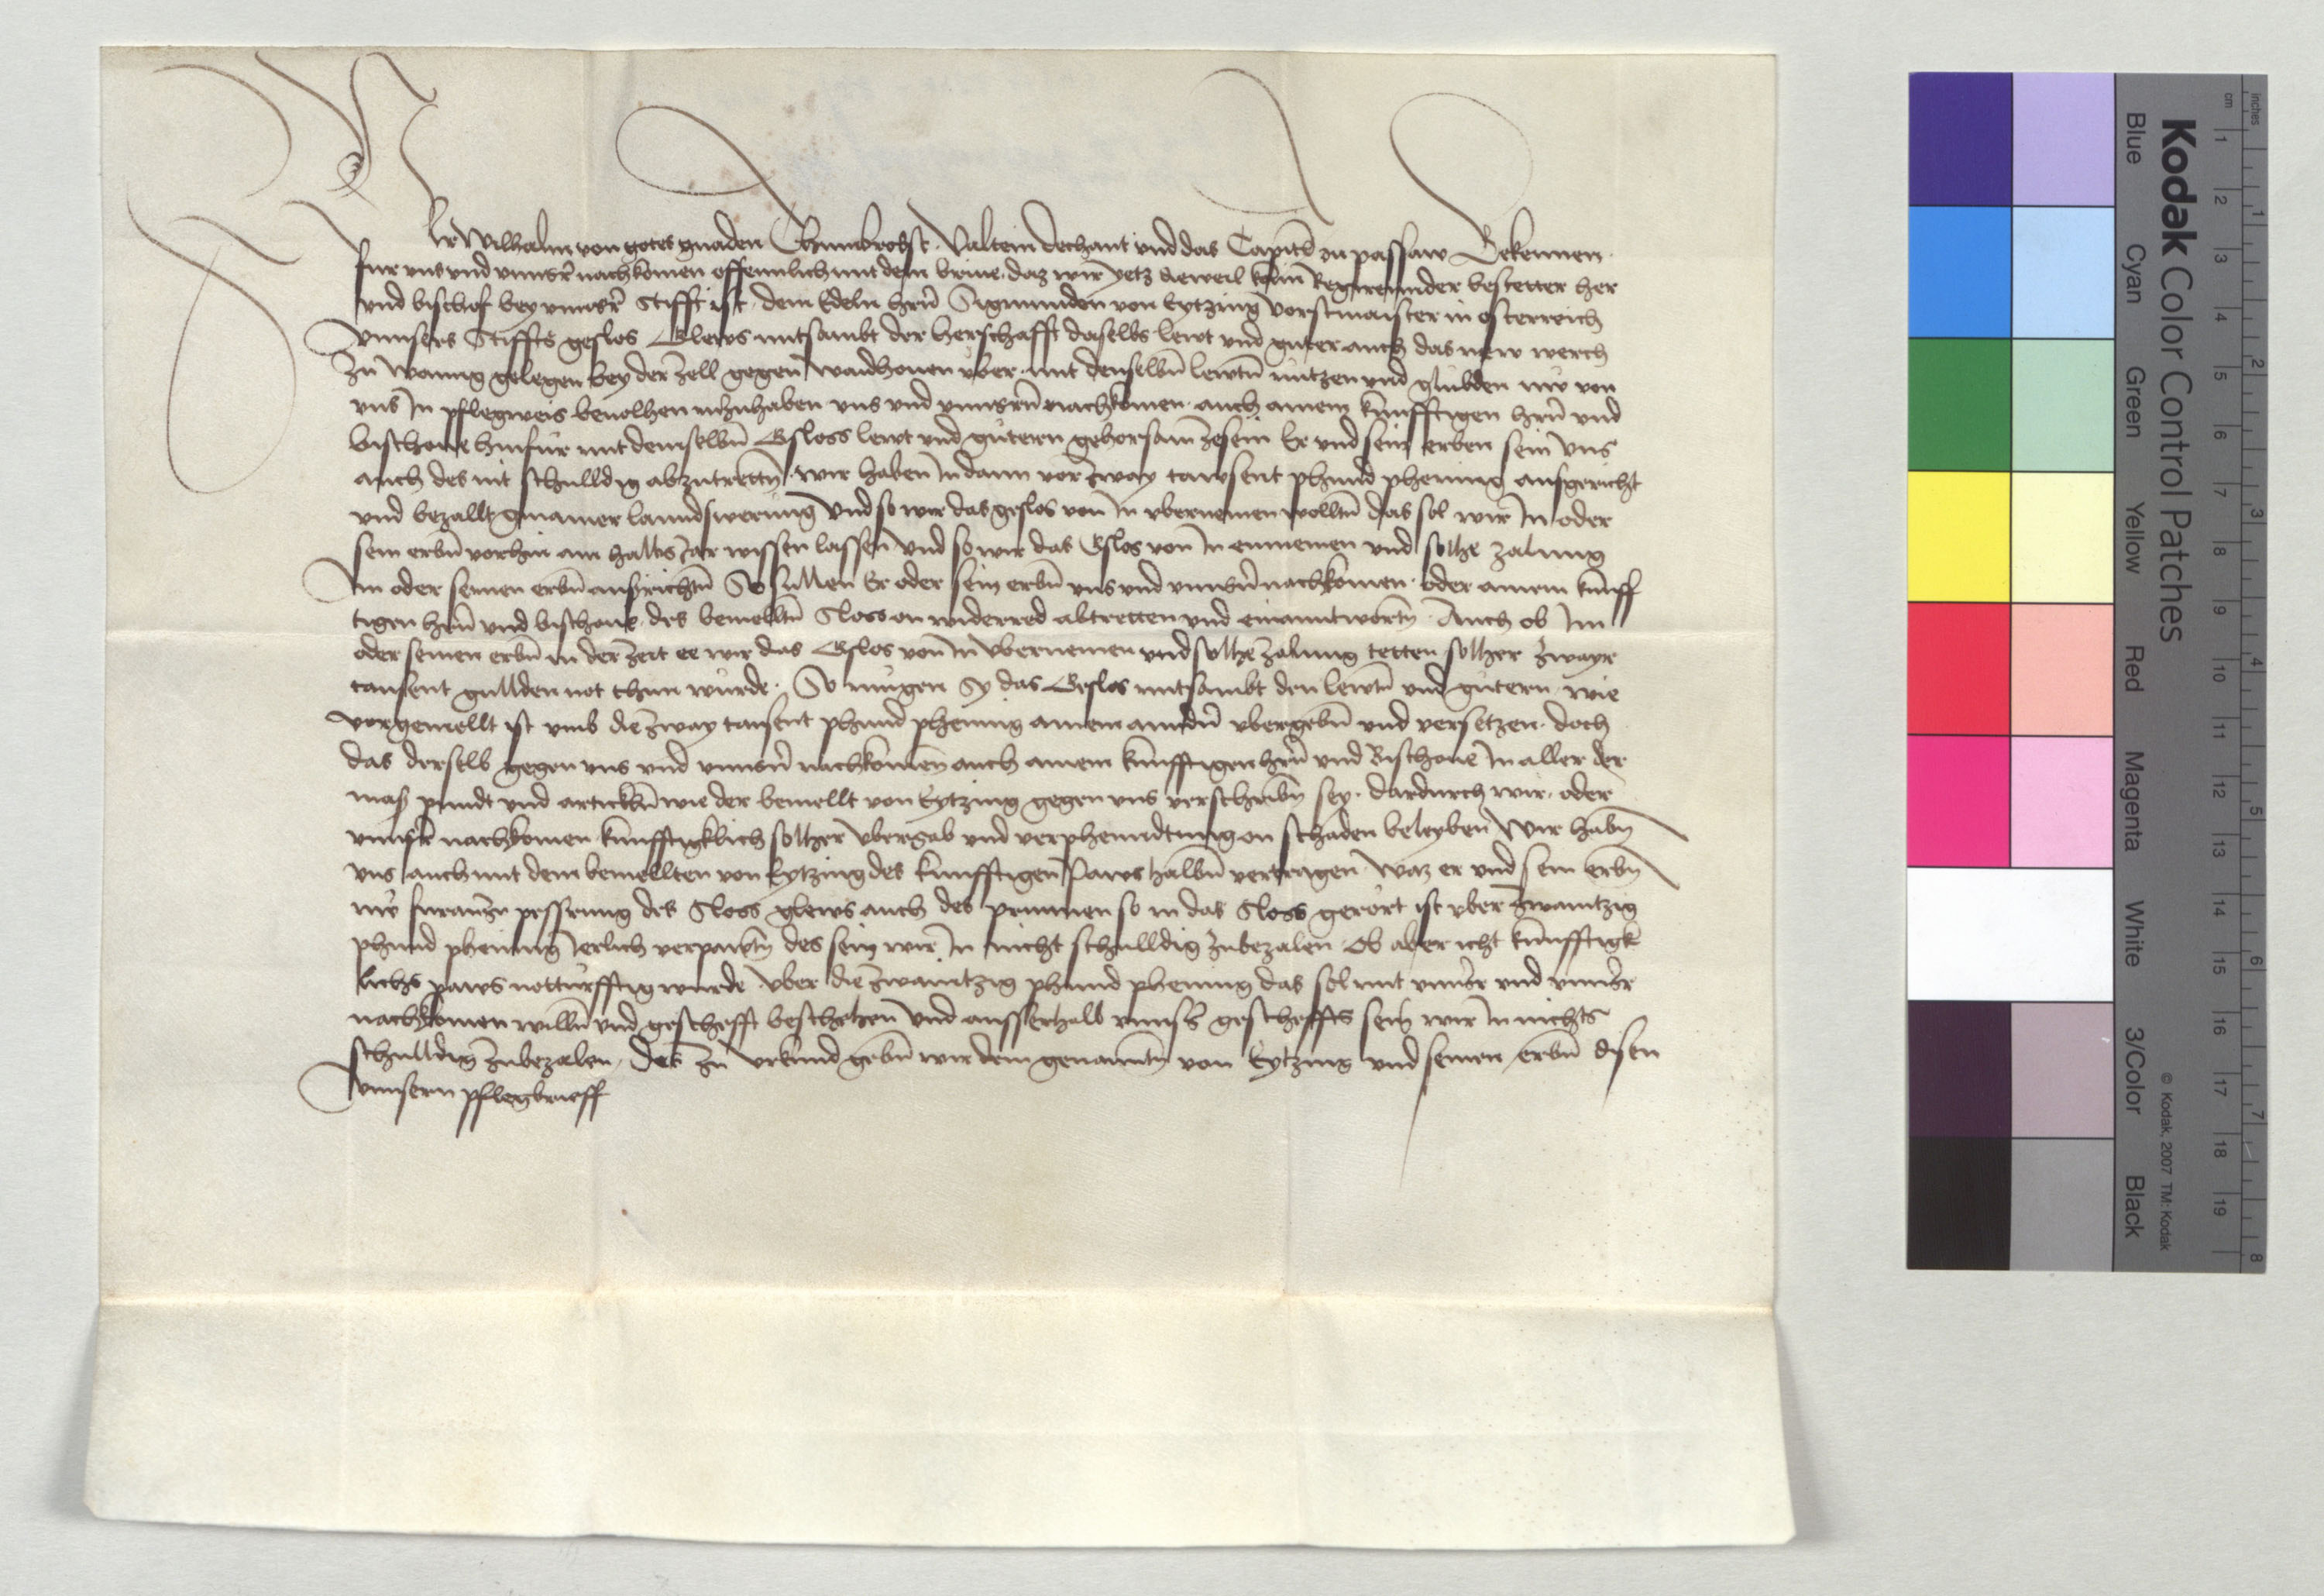 Wir Wilhalm von gotes gnaden Thumbrobst Valtein dechant vnd das Capitel zu passaw Bekennen
fur vns vnd vnnsr̄ nachkomen offennlich mit dem brieue daz wir yetz dieweil kain Regirennder bestetter her
vnd bischof bey vnnsr̄ Stifft ist dem Edeln hrn̄ Sigmunden von Eytzing vorstmaister in osterreich
vnnsers Stiffts geslos Glews mitsambt der herschafft daselbs lewt vnd guter auch das new werch
zu gelegen bey der zell gegen waidhouen vber mit denselbn̄ lewtn̄ nutzen vnd gulden von
vns In pflegweis beuolhen Inzuhaben vns vnd vnnsrn̄ nachkomen auch ainem kunfftigen hrn̄ vnd
bischoue hinfur mit demselbn̄ Gsloss lewt vnd gutern gehorsam zesein Er vnd sein erben sein vns
auch des nit schulldig abzutrettn̄ wir haben In dann vor zway tawsent phund phening ausgericht
vnd bezallt gmainer lanndswerung Vnd so wir das geslos von In vbernemen wolltn̄ das sol wir In oder
sein erbn̄ vorhin ain halbs Iar wissen lassen Vnd so wir das Gslos von In ennemen vnd solhe zalung
Im oder seinen erbn̄ ausrichtn̄ So sullen Er oder sein erbn̄ vns vnd vnnsrn̄ nachkomen oder ainem kunff
tigen hrn̄ vnd bischoue des bemelltn̄ Sloss on widerred abtretten vnd einanntwortn̄ Auch ob Im
oder seinen erbn̄ in der zeit ee wir das Gslos von In vbernemen vnd solhe zalung tetten solher zwayr
tausent gullden not thun wurde So mugen Sy das Geslos mitsambt den lewtn̄ vnd gutern wie
vorgemellt ist vmb die zway tausent phund phening ainem anndrn̄ vbergebn̄ vnd versetzen doch
das derselb gegen vns vnd vnnsrn̄ nachkomen auch ainem kunfftigen hrn̄ vnd Bischoue In aller der
mass pundt vnd artickln̄ wie der bemellt von Eytzing gegen vns verschribn̄ sey dardurch wir oder
vnnsr̄ nachkomen kunfftigklich solher vbergab vnd verphenndtung on schaden beleyben Wir habn̄
vns auch mit dem bemellten von Eytzing des kunfftigen Paws halbn̄ vertragen waz er vnd sein erbn̄
nw furan zu pessrung des Sloss glews auch des prunnen so in das Sloss gerort ist vber zwaintzig
phund phening Ierlich verpawtn̄ des sein wir In nicht schulldig zubezalen Ob aber icht kunfftigk
lichs paws notturfftig wurde vber die zwaintzig phund phening das sol mit vnnsr vnd vnnsr
nachkomen willn̄ vnd gescheft beschehen Vnd ausserhalb vnnsrs gescheffts sein wir In nichts
schulldig zubezalen Des zu vrkund gebn̄ wir dem genanntn̄ von Eytzing vnd seinen erbn̄ disen
vnnsern pflegbrieff
Kodak Color Control Patches
Blue Cyan Green Yellow Red Magenta White 3/Color Black
© Kodak, 2007 TM: Kodak
cm 1 2 3 4 5 6 7 8 9 10 11 12 13 14 15 16 17 18 19
inches 1 2 3 4 5 6 7 8